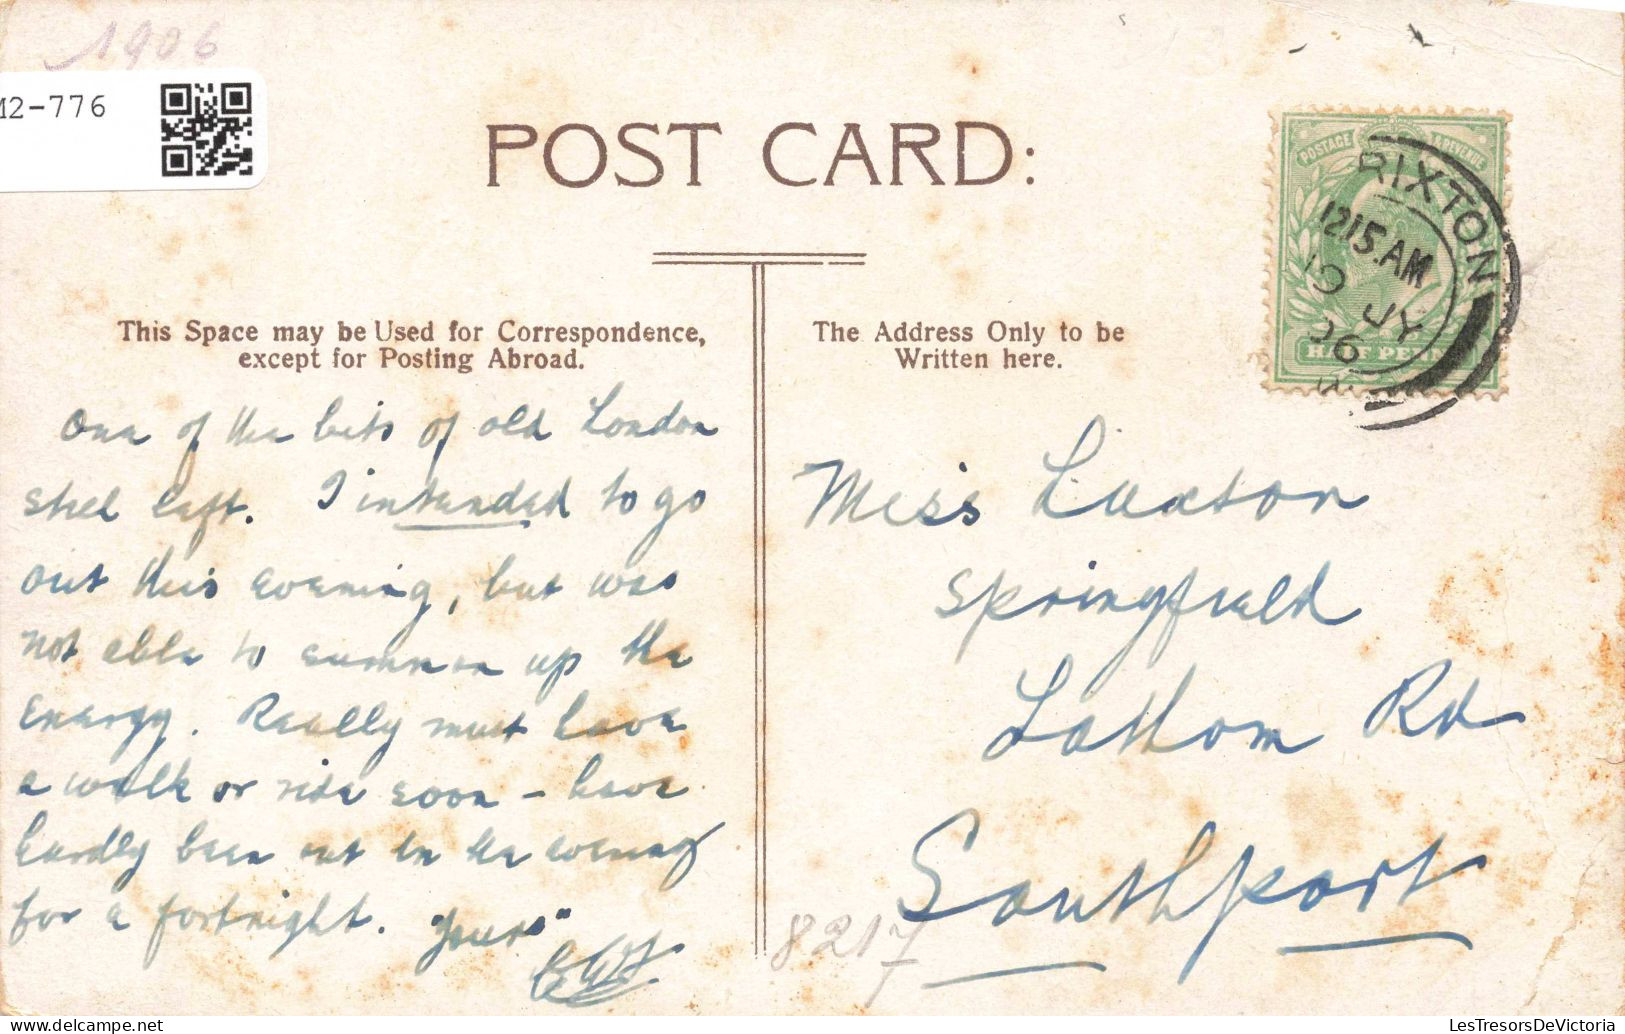 1906
M2-776
POST CARD:
POSTAGE REVENUE
RIXTON
1215.AM
10 JY
06
HALF PENNY
This Space may be Used for Correspondence,
except for Posting Abroad.
The Address Only to be
Written here.
One of the bits of old London
still left. I intended to go
out this evening, but was
not able to summon up the
energy. Really must have
a walk or ride soon - have
hardly been out in the evening
for a fortnight. "Yours"
Miss Luxton
Springfield
Lathom Rd
Southport
8217
LesTresorsDeVictoria.com